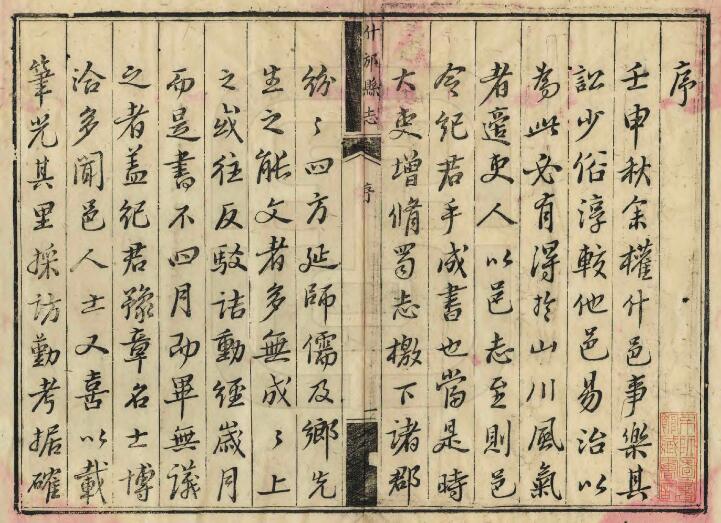 序
壬申秋余權什邑事樂其
訟少俗淳較他邑易治以
為此必有得於山川風氣
者適吏人以邑志至則邑
令紀君手成書也當是時
大吏增脩蜀志檄下諸郡
什邡縣志
序
一
紛〻四方延師儒及鄉先
生之能文者多無成〻上
之或往反駁詰動經歲月
而是書不四月而畢無議
之者蓋紀君豫章名士博
洽多聞邑人士又喜以載
筆光其里採訪勤考据確